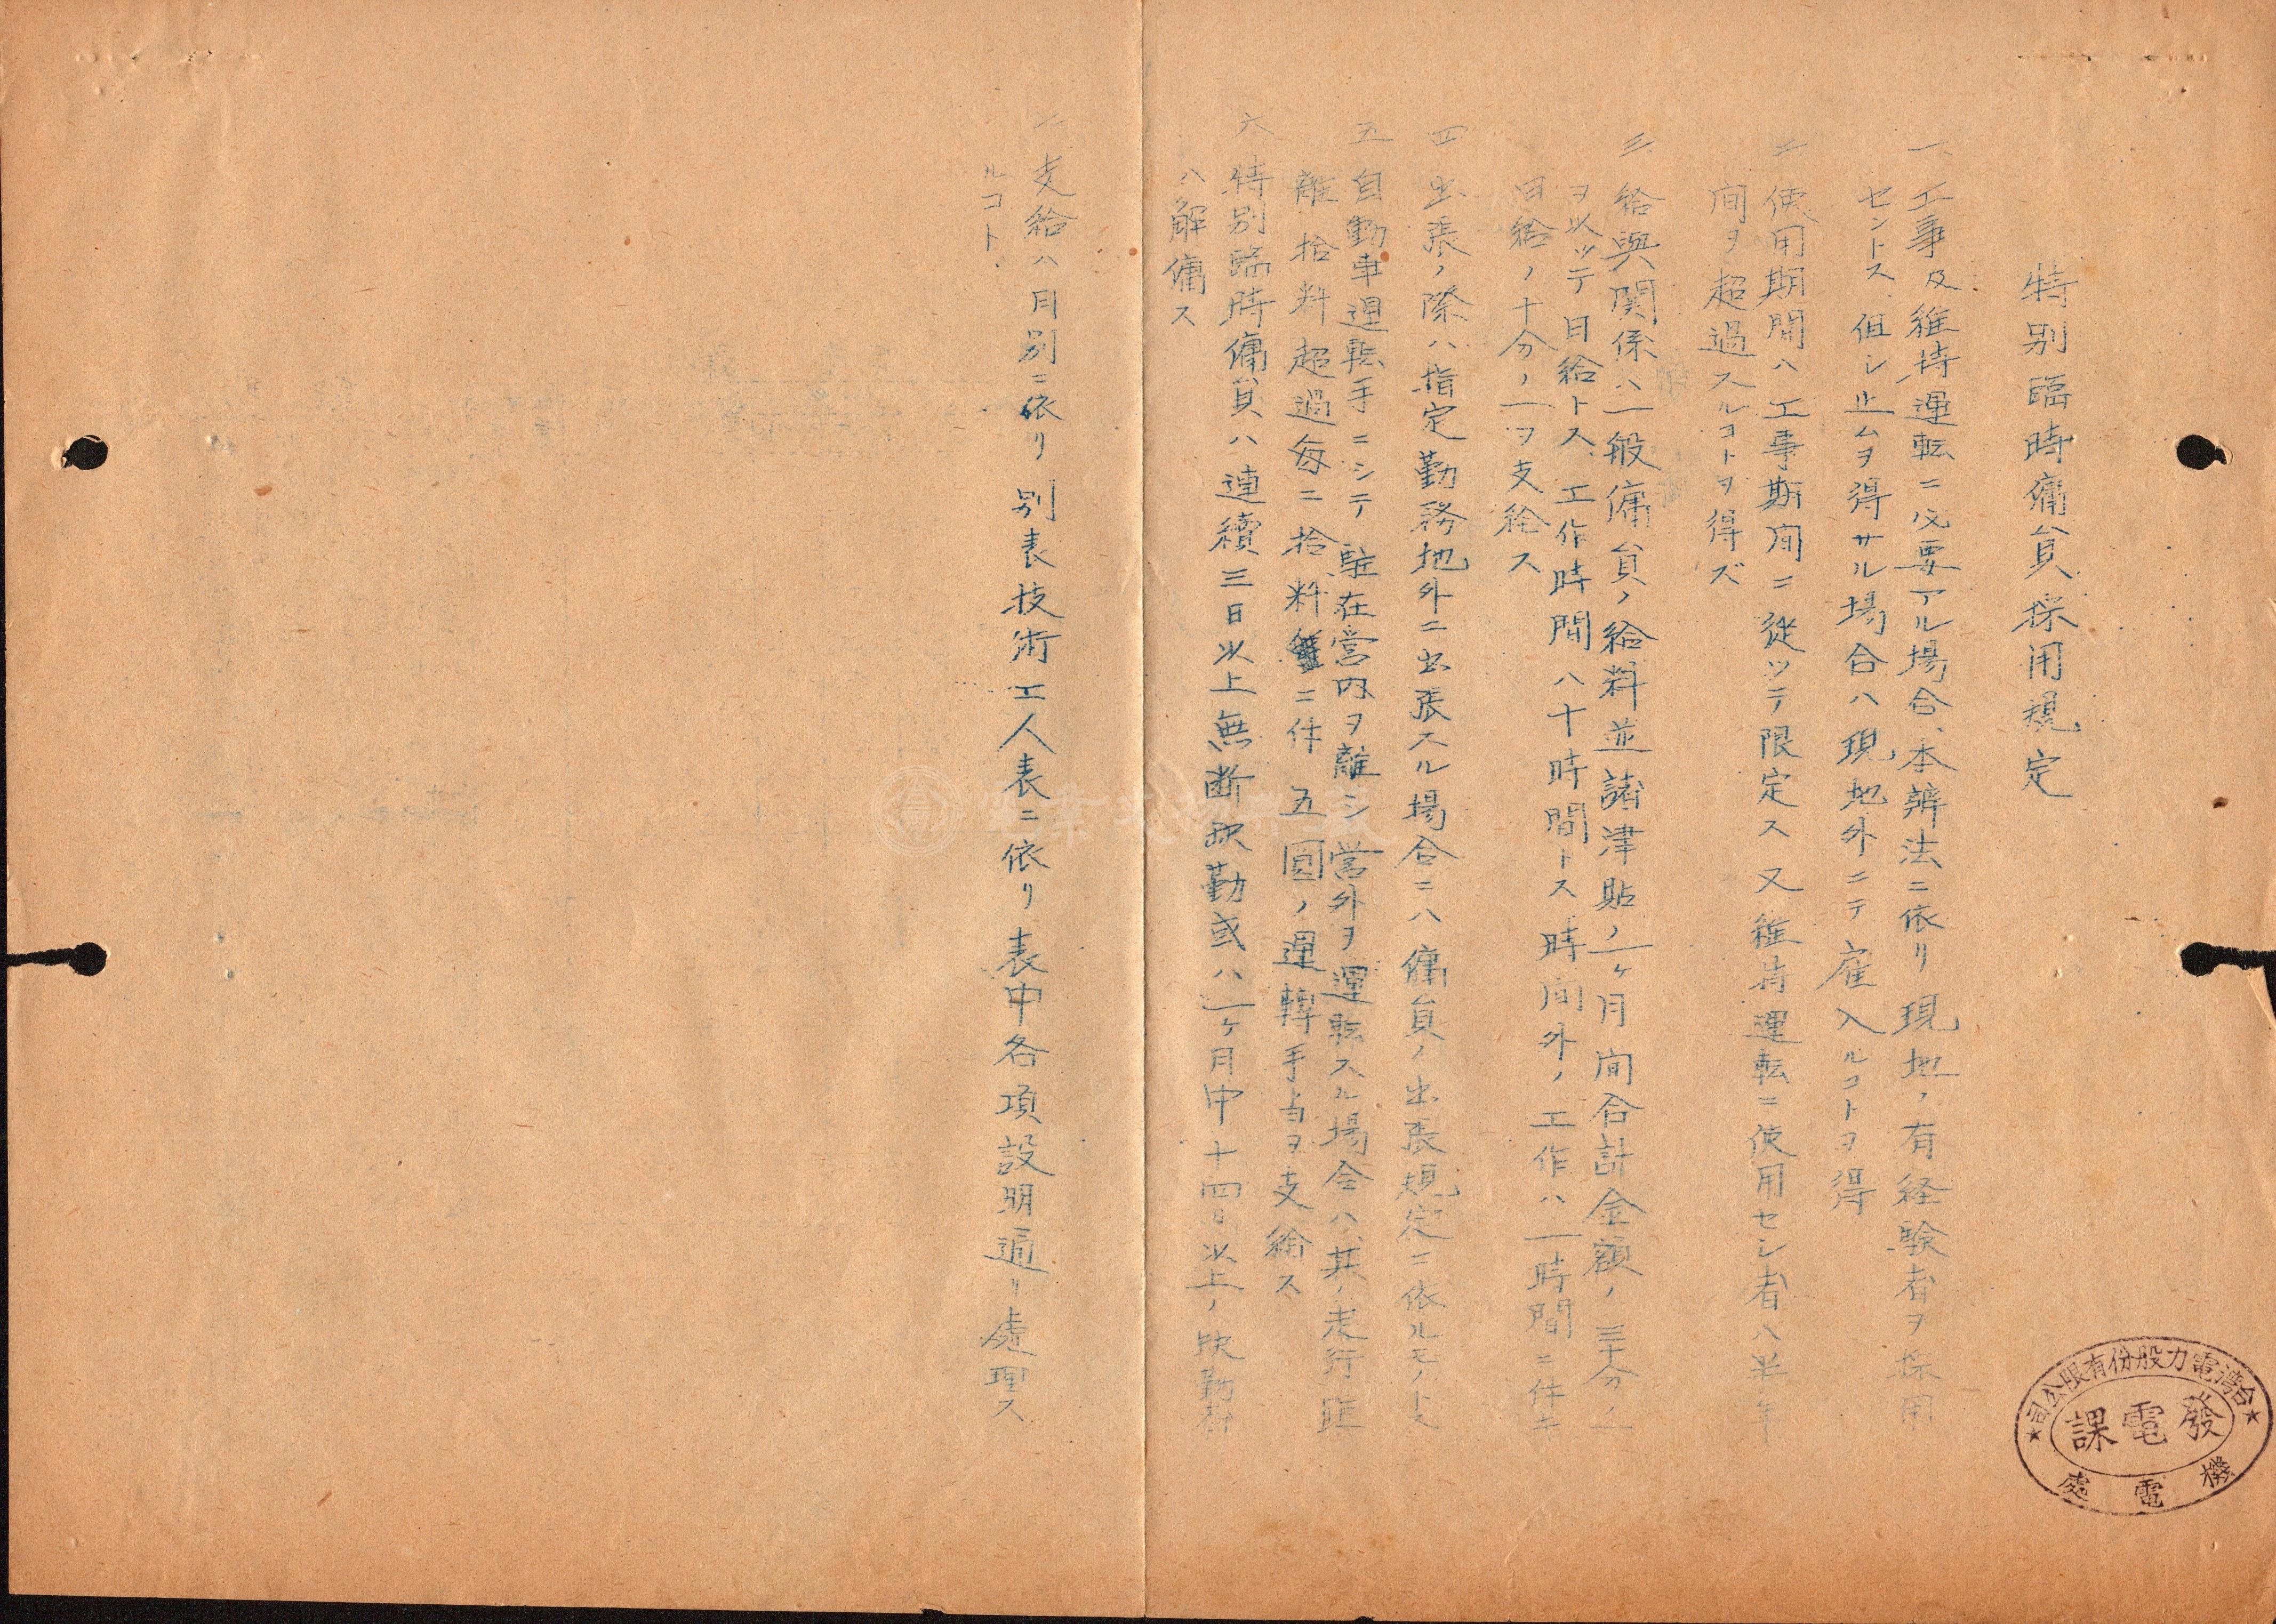 特別臨時傭員採用規定
一、工事及維持運転ニ必要アル場合、本辨法ニ依リ現地ノ有経験者ヲ採用
セントス 但シ止ムヲ得サル場合ハ現地外ニテ雇入ルコトヲ得
二 使用期間ハ工事期间ニ從ツテ限定ス 又維持運転ニ使用セシ者ハ半年
间ヲ超過スルコトヲ得ズ
三 給與関係ハ一般傭員ノ給料並諸津貼ノ一ヶ月间合計金額ノ三十分ノ一
ヲ以ッテ日給トス 工作時間ハ十時間トス 時间外ノ工作ハ一時間ニ付キ
日給ノ十分ノ一ヲ支給ス
四 出張ノ際ハ指定勤務地外ニ出張スル場合ニハ傭員ノ出張規定ニ依ルモノトス
五 自動車運転手ニシテ駐在営内ヲ離シ営外ヲ運転スル場合ハ、其ノ走行距
離拾粁超過毎ニ拾粁ニ付五圓ノ運轉手手当ヲ支給ス
六 特別臨時傭員ハ連續三日以上無断欤勤或ハ一ヶ月中十四日以上ノ欤勤者
ハ解傭ス
支給ハ月別ニ依リ別表技術工人表ニ依リ表中各項設明通リ處理ス
ルコト
台湾電力股份有限公司
發電課
機電處